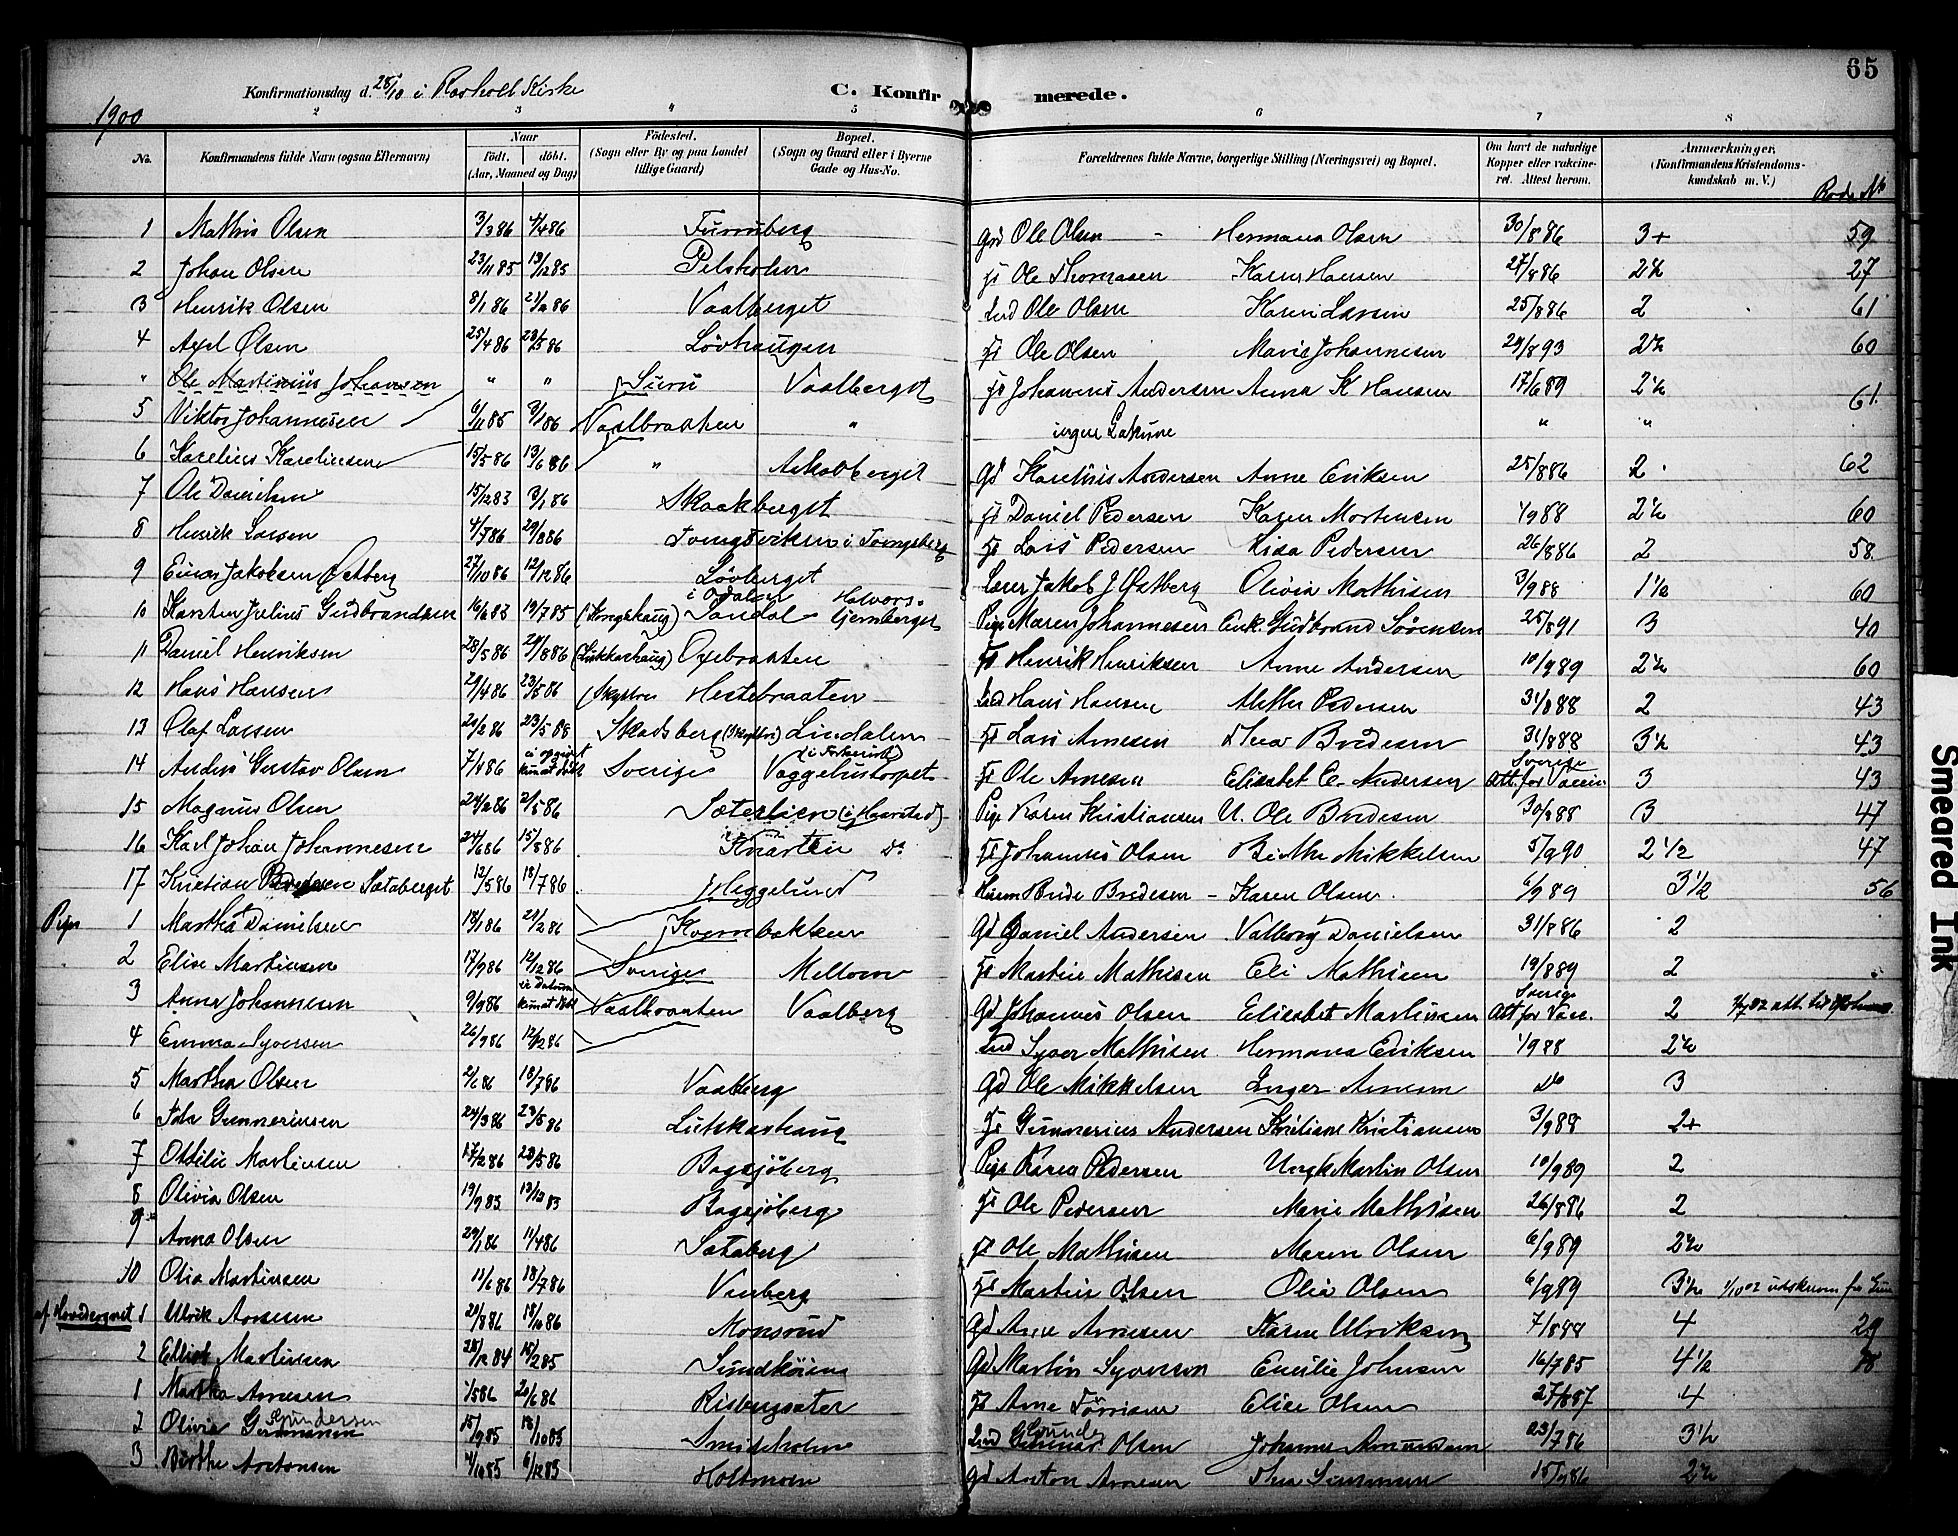 65
1900
Konfirmationsdag d. 28/10 i Kirke
C. Konfirmerede.
2 3 4 5 6 7 8
No.
Konfirmandens fulde Navn (ogsaa Efternavn)
Naar
födt. döbt.
(Aar, Maaned og Dag)
Födested.
(Sogn eller By og paa Landet tillige Gaard)
Bopæl.
(Sogn og Gaard eller i Byerne Gade og Hus-No.
Forældrenes fulde Navne, borgerlige Stilling (Næringsvei) og Bopæl.
Om havt de naturlige Kopper eller vaccineret. Attest herom.
Anmærkninger,
(Konfirmandens Kristendomskundskab m. V.)
1 Mathis Olsen 3/3 86 4/4 86 Furuberg Ole Olsen - Hermana Olsen 30/8 86 3+ 59
2 Johan Olsen 23/11 85 13/12 85 Ole Thomasen Karen Hansen 27/8 86 2½ 27
3 Henrik Olsen 8/1 86 86 Vaalberget Ind Ole Olsen Karen Larsen 25/8 86 2 61
4 Axel Olsen 25/4 86 23/5 86 Lövhaugen Fs Ole Olsen Marie Johannesen 93 2½ 60
" Ole Martinius Johansen " " Vaalberget Fs Johannes Andersen Anna K Hansen 17/6 89 2½ 61
5 Viktor Johannesen 6/11 85 3/1 86 Vaalbraaten " ingen Lakune " "
6 Karelius Kareliusen 15/5 86 13/6 86 " Gd Andersen Anne Eriksen 25/8 86 2 62
7 Ole Danielsen 15/12 83 3/1 86 Skaakberget Fs Daniel Pedersen Karen Mortensen 1/9 88 2½ 60
8 Henrik Larsen 4/7 86 29/8 86 Fs Lars Pedersen Lisa Pedersen 26/8 86 2 58
9 Einar Jakobsen Östberg 27/10 86 12/12 86 Lövberget Jakob J Östberg Olivia Mathisen 3/9 88 1½ 60
10 Karsten Julius Gudbrandsen 19/7 85 i Odalen Sandal Halvorstjernberget Pige Maren Johannesen Enk. Gudbrand Sörensen 25/8 91 3 40
11 Daniel Henriksen 28/5 86 29/8 86 (Lukkashaug) Oxebraaten Fs Henrik Henriksen Anne Andersen 10/9 89 2½ 60
12 Hans Hansen 29/4 86 23/5 86 Hestebraaten Ind Hans Hansen Pedersen 31/8 88 2 43
13 Olaf Larsen 86 23/5 Skadsberg Lindalen Fs Lars Arnesen Thea Bredesen 31/8 88 3½ 43
14 Anders Gustav Olsen 7/4 86 ei opgivet kun at döbt Sverige Vaggehustorpet Fs Ole Arnesen Elisabet C. Andersen Sverige Att. for Vaccin. 3 43
15 Magnus Olsen 86 2/5 86 Sæterlien Pige Karen Kristiansen U. Ole Bredesen 30/8 88 3 47
16 Karl Johan Johannesen 24/6 86 15/8 86 Do Fs Johannes Olsen Berthe Mikkelsen 5/9 90 2½ 47
17 Kristian Sætaberget 12/5 86 18/7 86 Heggelund Bredesen - Karen Olsen 6/9 89 3½ 56
Piger 1 Martha Danielsen 18/1 86 86 Kvernbakken Gd Daniel Andersen Valborg Danielsen 31/8 86 2
2 Elise Martinsen 17/9 86 12/12 86 Sverige Fs Martin Mathisen Eli Mathisen 19/8 89 2
3 Anna Johannesen 9/9 86 ei Datum kun at döbt Vaalbraaten Vaalberg Gd Johannes Olsen Elisabet Martinsen Sverige Att for Vacc. 2
4 Emma Syversen 26/9 86 12/12 86 Ind Syver Mathisen Hermana Eriksen 1/9 88 2½
5 Martha Olsen 2/6 86 18/7 86 Vaalberg Gd Ole Mikkelsen Inger Arnesen Do 3
6 Ida Gunneriusen 24/3 86 23/5 86 Lukkashaug Fs Gunnerius Andersen Kristiansen 3/9 88 2+
7 Ottilie Martinsen 17/2 86 23/5 86 Bagsjöberg Pige Karen Pedersen Ungk Martin Olsen 10/9 89 2
8 Olivia Olsen 19/9 85 13/12 85 Bagsjöberg Fs Ole Pedersen Marie Mathisen 26/8 86 2
9 Anna Olsen 29/1 86 11/4 86 Sætaberg Fs Ole Mathisen Maren Olsen 6/9 89 2½
10 Olia Martinsen 11/6 86 18/7 86 Vinberg Fs Martin Olsen Olia Olsen 6/9 89 3½ 1/10 02
af Hovedsognet 1 Ulrik Arnesen 20/8 86 86 Monsrud Gd Arne Arnesen Karen Ulriksen 7/8 88 4 29
2 Martinsen 28/12 84 15/2 85 Sundköien Gd Martin Syversen Emilie Johnsen 16/7 85 4½
1 Martha Arnesen 1/5 86 20/6 86 Risbergsæter Fs Arne Elise Olsen 27/8 87 4
2 Olivia Gundersen 15/9 85 18/10 85 Smidsholm Ind Gunder Olsen Johanne Amundsen 23/7 86 3½
3 Berthe Antonsen 4/10 85 6/12 85 Holtmoen Gd Anton Arnesen 15/9 86 2½
Smeared Ink